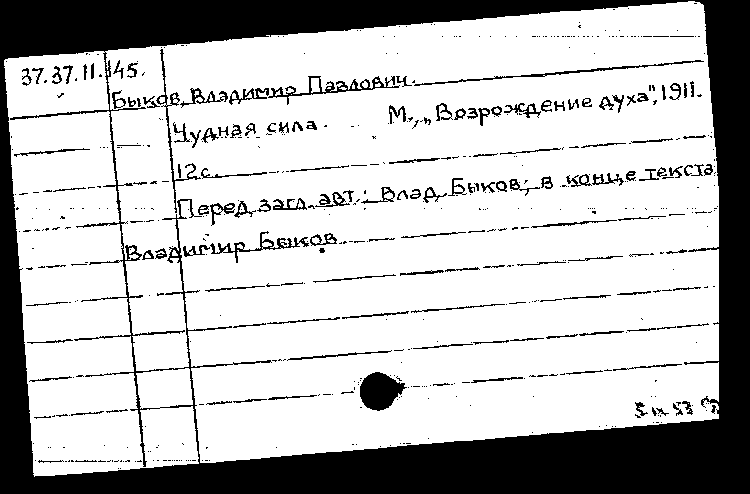 37.37.11.145.
Быков, Владимир Павлович.
Чудная сила. М., „Возрождение духа", 1911.
12с.
Перед загл. авт.: Влад. Быков; в конце текста
Владимир Быков.
5 IX 53